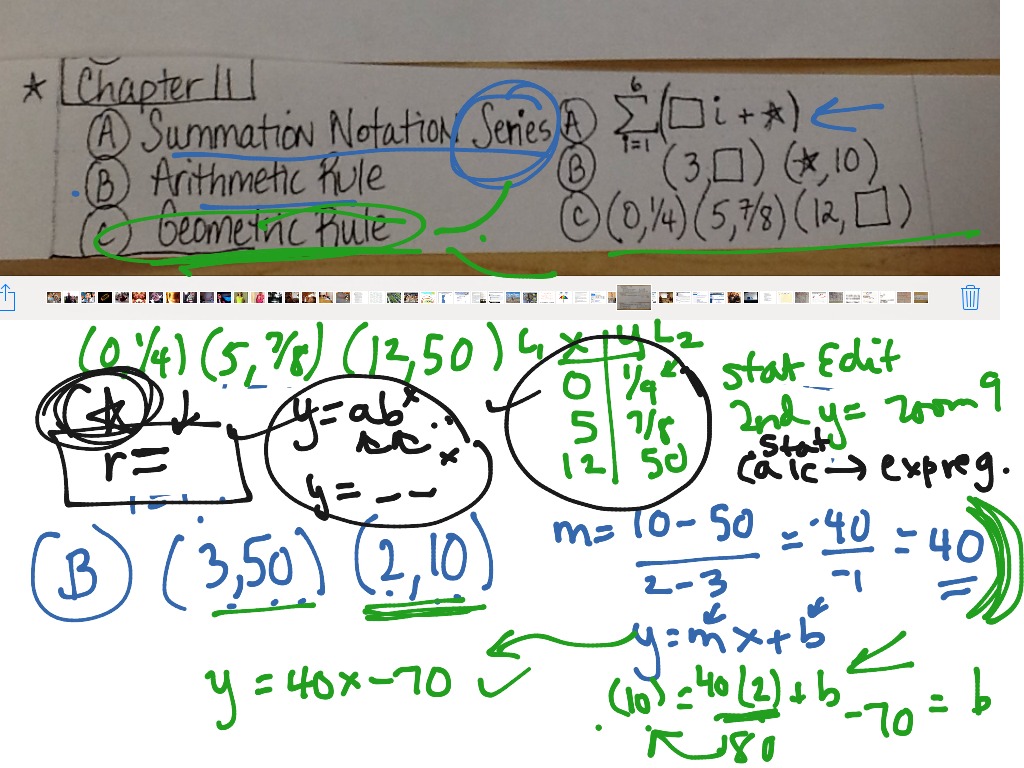 ★ Chapter 11
Ⓐ Summation Notation Series Ⓐ \sum_{i=1}^{6} (□ i + ★)
Ⓑ Arithmetic Rule Ⓑ (3, □) (★, 10)
Ⓒ Geometric Rule Ⓒ (0, 1/4) (5, 7/8) (12, □)
(0, 1/4) (5, 7/8) (12, 50) L1 x y L2
0 1/4
5 7/8
12 50
stat Edit
2nd y= zoom 9
stat
calc → expreg.
★ y = ab^x
r =
y = _ _ ^x
Ⓑ (3, 50) (2, 10) m = 10 - 50 / 2 - 3 = -40 / -1 = 40
y = mx + b
y = 40x - 70 ✓ (10) = 40(2) + b -70 = b
80